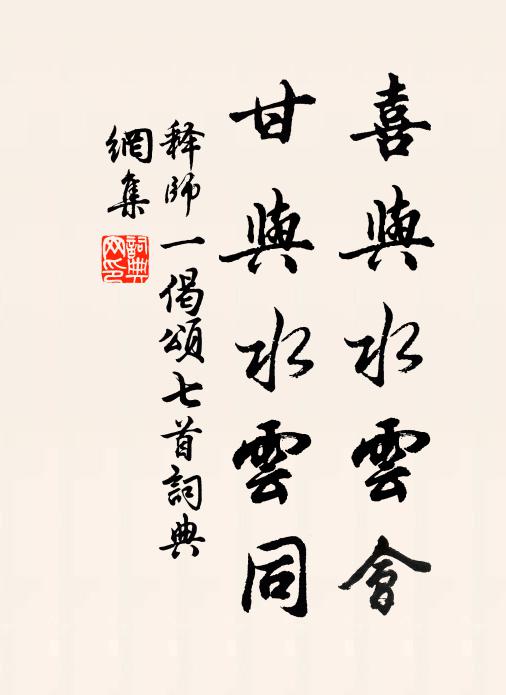 喜與水雲會
甘與水雲同
释師一偈頌七首詞典
網集
詞典
网印